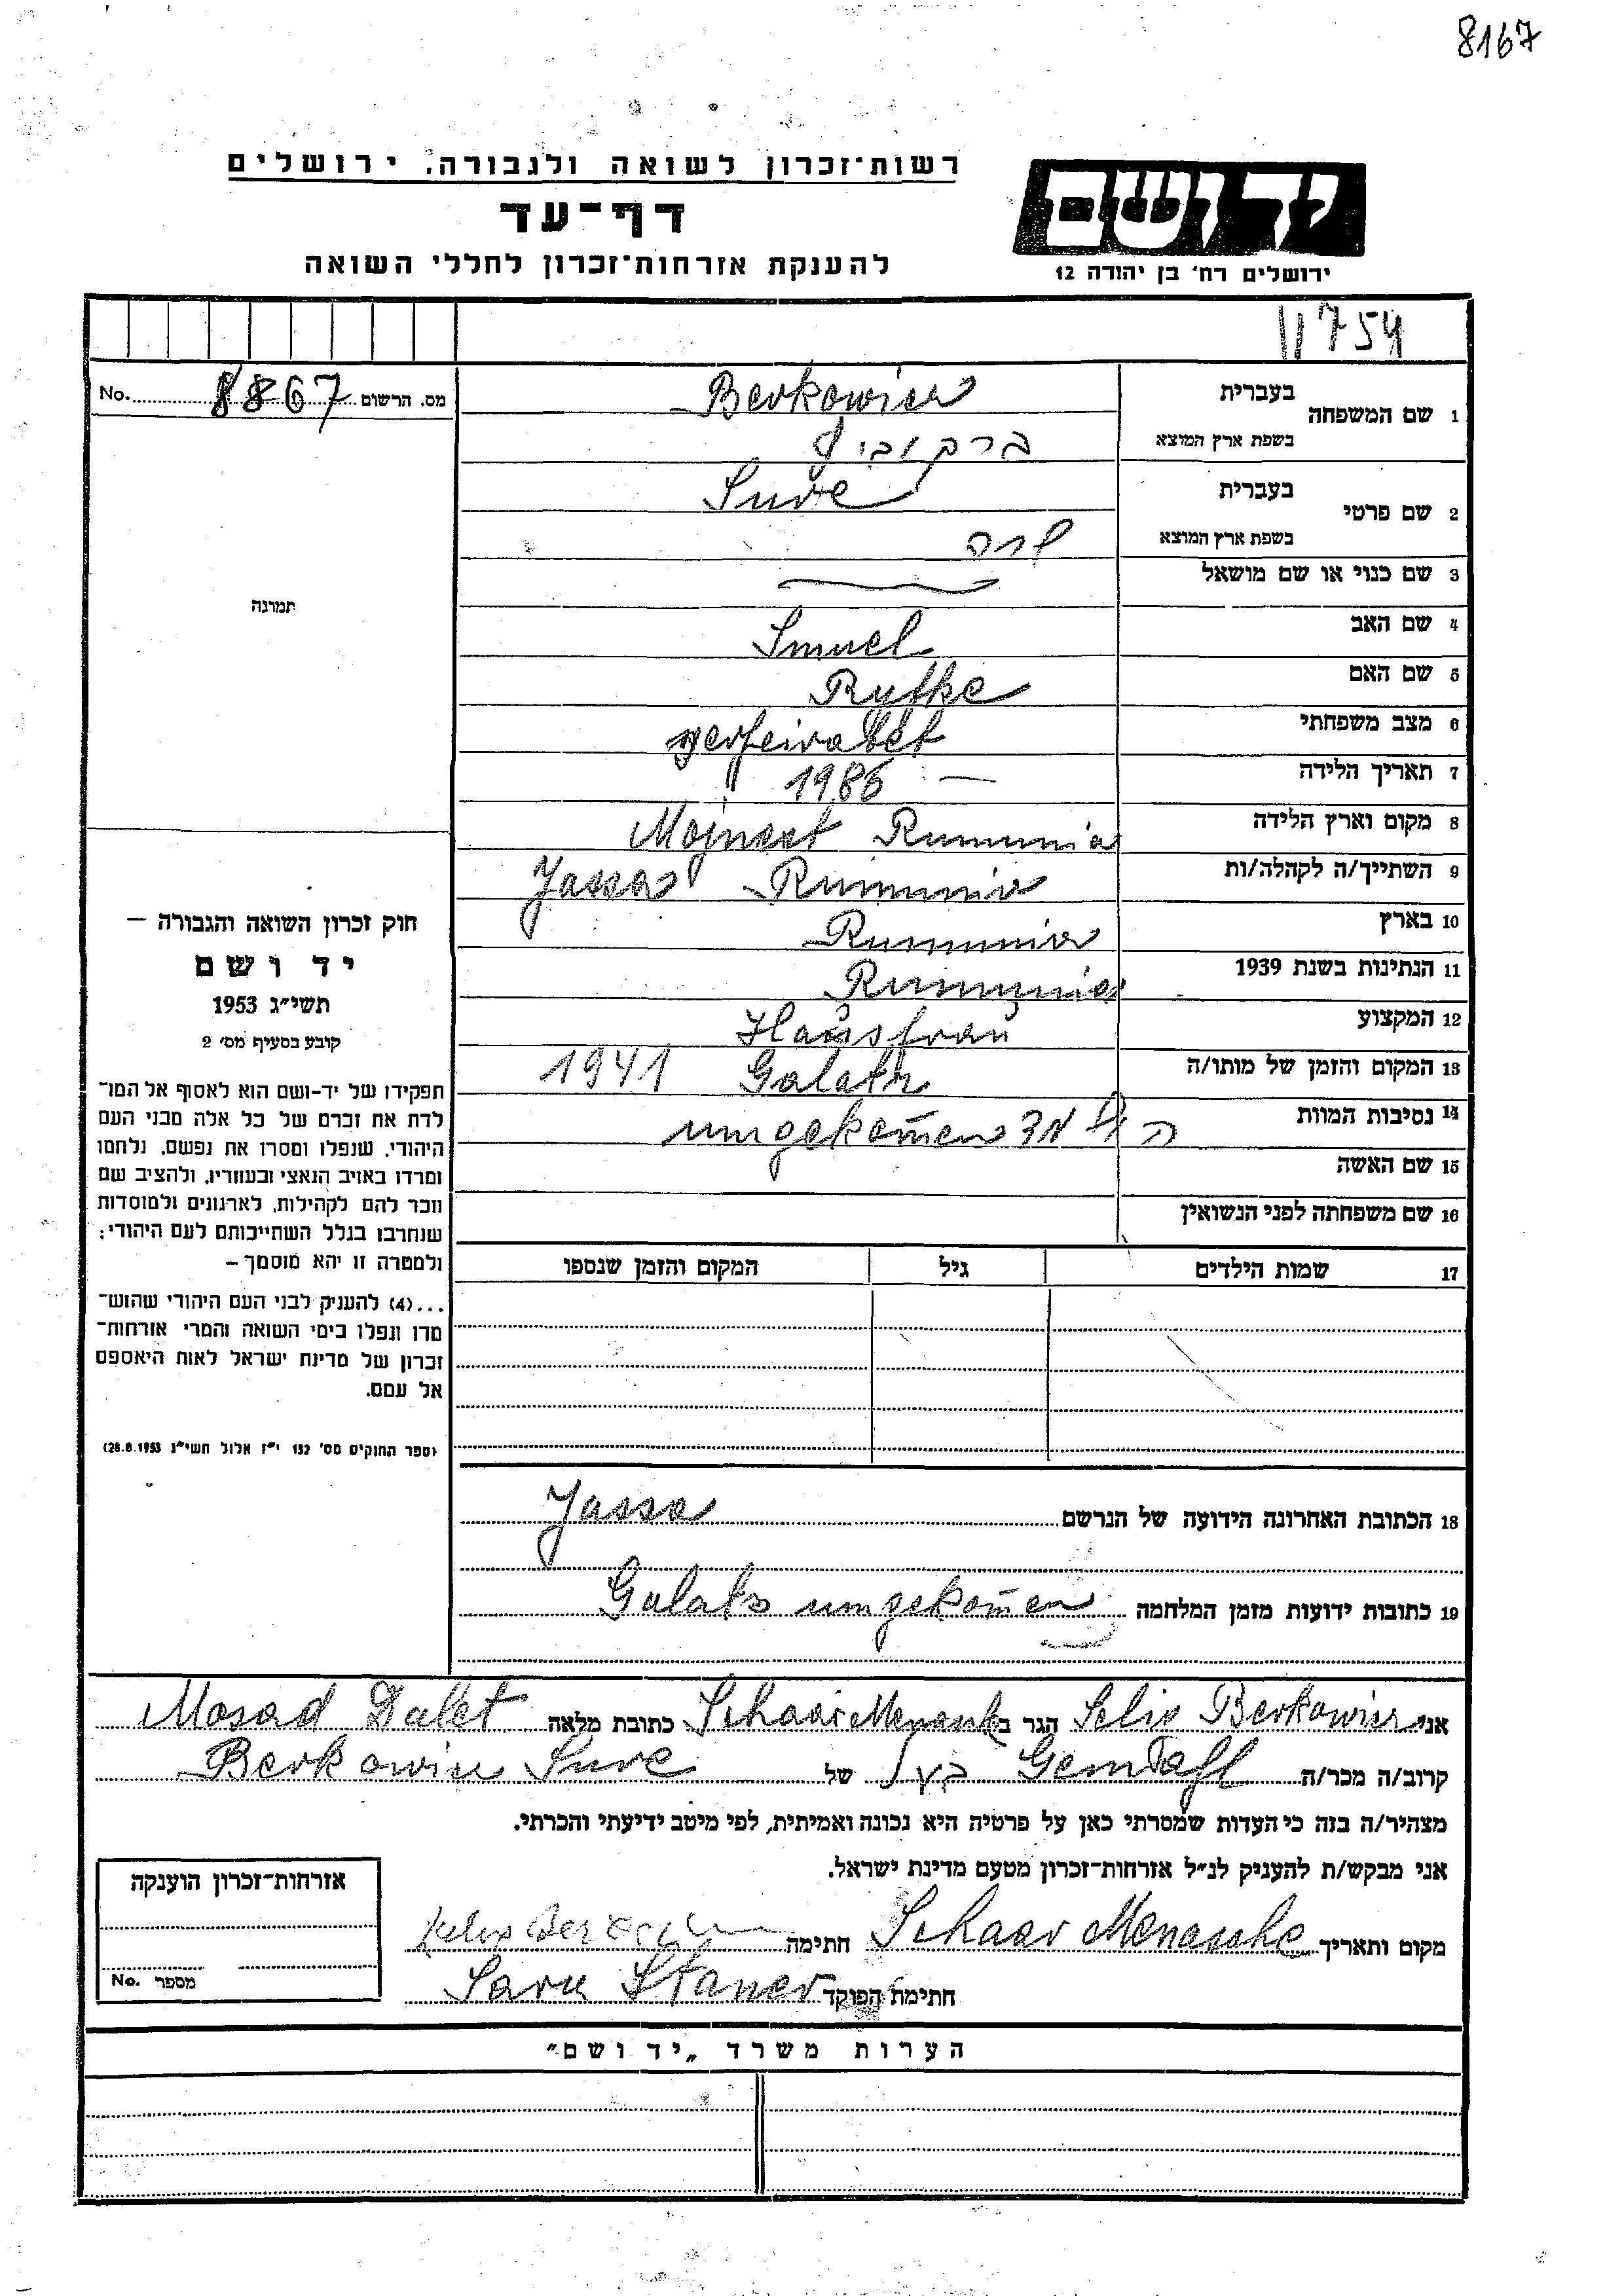 8167
רשות־זכרון לשואה ולגבורה, ירושלים
דף־עד
להענקת אזרחות־זכרון לחללי השואה
יד ושם
ירושלים רח' בן יהודה 12
11754
מס. הרשום 8867 No.
1 שם המשפחה
בעברית Berkowicz
בשפת ארץ המוצא ברקוביץ
2 שם פרטי
בעברית Sure
בשפת ארץ המוצא שרה
3 שם כנוי או שם מושאל
4 שם האב Smuel
5 שם האם
6 מצב משפחתי verheiratet
7 תאריך הלידה 1986 —
8 מקום וארץ הלידה Rumunia
9 השתייך/ה לקהלה/ות Jassa Rumunia
10 בארץ Rumunia
11 הנתינות בשנת 1939 Rumunia
12 המקצוע Hausfrau
13 המקום והזמן של מותו/ה Galatz 1941
14 נסיבות המוות umgekom̄en
15 שם האשה
16 שם משפחתה לפני הנשואין
17 שמות הילדים גיל המקום והזמן שנספו
תמונה
חוק זכרון השואה והגבורה —
יד ושם
תשי״ג 1953
קובע בסעיף מס' 2
תפקידו של יד-ושם הוא לאסוף אל המו־
לדת את זכרם של כל אלה מבני העם
היהודי, שנפלו ומסרו את נפשם, נלחמו
ומרדו באויב הנאצי ובעוזריו, ולהציב שם
וזכר להם לקהילות, לארגונים ולמוסדות
שנחרבו בגלל השתייכותם לעם היהודי;
ולמטרה זו יהא מוסמך —
...(4) להעניק לבני העם היהודי שהוש־
מדו ונפלו בימי השואה והמרי אזרחות־
זכרון של מדינת ישראל לאות היאספם
אל עמם.
(ספר החוקים מס' 132 י״ז אלול תשי״ג 28.8.1953)
18 הכתובת האחרונה הידועה של הנרשם Jassa
19 כתובות ידועות מזמן המלחמה Galatz umgekom̄en
אני Selig Berkowicz הגר ב Schaar Menasche כתובת מלאה Mosad Dalet
קרוב/ה מכר/ה בעל של Berkowicz Sure
מצהיר/ה בזה כי העדות שמסרתי כאן על פרטיה היא נכונה ואמיתית, לפי מיטב ידיעתי והכרתי.
אני מבקש/ת להעניק לנ״ל אזרחות־זכרון מטעם מדינת ישראל.
מקום ותאריך Schaar Menasche חתימה
חתימת הפוקד Sara Staner
אזרחות־זכרון הוענקה
מספר No.
הערות משרד „יד ושם״